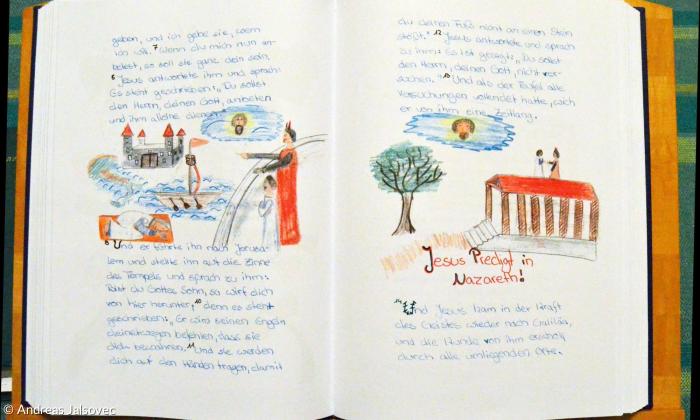 geben, und ich gebe sie, wem
ich will. 7 Wenn du mich nun an-
betest, so soll sie ganz dein sein.
8 Jesus antwortete ihm und sprach:
Es steht geschrieben: „Du sollst
den Herrn, deinen Gott, anbeten
und ihm alleine dienen.“
9 Und er führte ihn nach Jerusa-
lem und stellte ihn auf die Zinne
des Tempels und sprach zu ihm:
Bist du Gottes Sohn, so wirf dich
von hier herunter, 10 denn es steht
geschrieben: „Er wird seinen Engeln
deinetwegen befehlen, dass sie
dich bewahren. 11 Und sie werden
dich auf den Händen tragen, damit
du deinen Fuß nicht an einen Stein
stößt.“ 12 Jesus antwortete und sprach
zu ihm: Es ist gesagt: „Du sollst
den Herrn, deinen Gott, nicht ver-
suchen.“ 13 Und als der Teufel alle
Versuchungen vollendet hatte, wich
er von ihm eine Zeitlang.
Jesus Predigt in
Nazareth!
14 Und Jesus kam in der Kraft
des Geistes wieder nach Galiläa,
und die Kunde von ihm erscholl
durch alle umliegenden Orte.
© Andreas Jalsovec